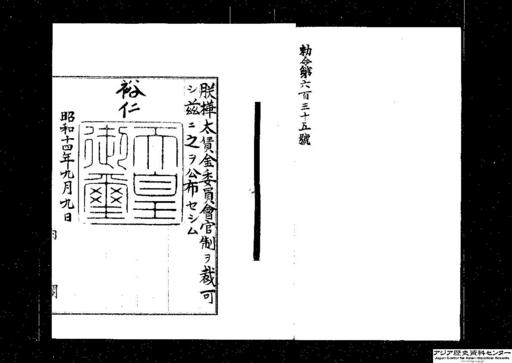 勅令第六百三十五號
朕樺太賃金委員會官制ヲ裁可
シ茲ニ之ヲ公布セシム
裕仁
天皇
御璽
昭和十四年九月九日
内
閣
アジア歴史資料センター
Japan Center for Asian Historical Records